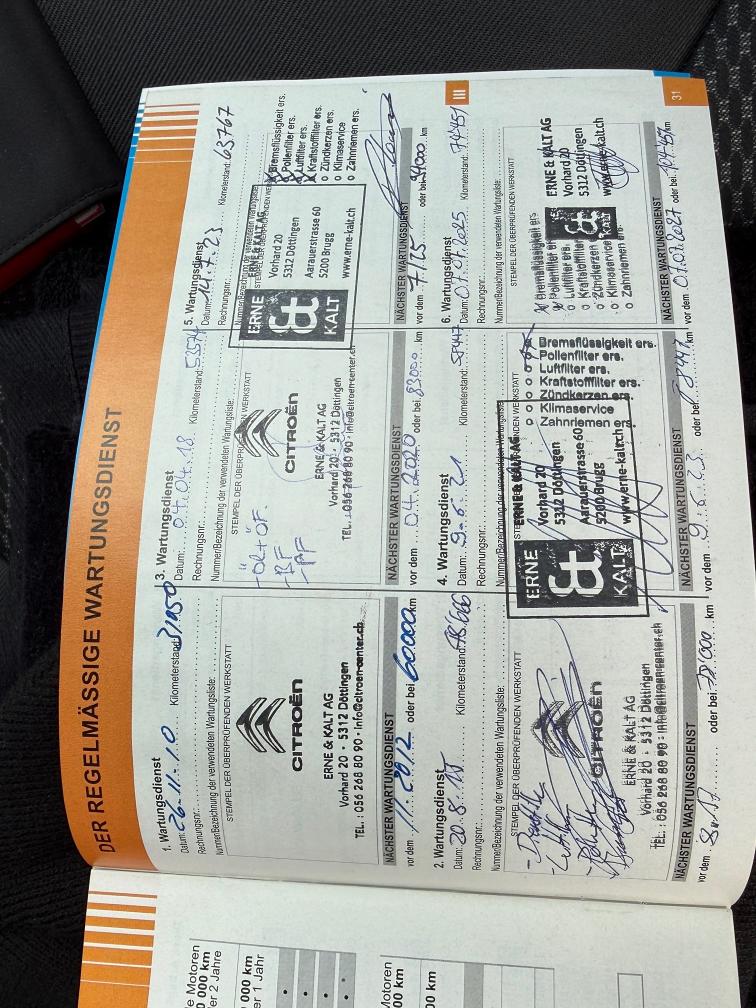 DER REGELMÄSSIGE WARTUNGSDIENST
1. Wartungsdienst
Datum: 26.11.10 Kilometerstand: 31950
Rechnungsnr.:
Nummer/Bezeichnung der verwendeten Wartungsliste:
STEMPEL DER ÜBERPRÜFENDEN WERKSTATT
CITROËN
ERNE & KALT AG
Vorhard 20 · 5312 Döttingen
TEL.: 056 268 80 90 · info@citroen-center.ch
NÄCHSTER WARTUNGSDIENST
vor dem 11.2012 oder bei 60000 km
2. Wartungsdienst
Datum: 20.8.15 Kilometerstand:
Rechnungsnr.:
Nummer/Bezeichnung der verwendeten Wartungsliste:
STEMPEL DER ÜBERPRÜFENDEN WERKSTATT
CITROËN
ERNE & KALT AG
Vorhard 20 · 5312 Döttingen
TEL.: 056 268 80 90 · info@citroen-center.ch
NÄCHSTER WARTUNGSDIENST
vor dem 8.17 oder bei km
3. Wartungsdienst
Datum: 04.04.18 Kilometerstand: 53574
Rechnungsnr.:
Nummer/Bezeichnung der verwendeten Wartungsliste:
STEMPEL DER ÜBERPRÜFENDEN WERKSTATT
- Öl + ÖF.
- BF
- PF
CITROËN
ERNE & KALT AG
Vorhard 20 · 5312 Döttingen
TEL.: 056 268 80 90 · info@citroen-center.ch
NÄCHSTER WARTUNGSDIENST
vor dem 04.2020 oder bei 83000 km
4. Wartungsdienst
Datum: 9.6.21 Kilometerstand: 58447
Rechnungsnr.:
Nummer/Bezeichnung der verwendeten Wartungsliste:
ERNE & KALT
ERNE & KALT AG
Vorhard 20
5312 Döttingen
Aarauerstrasse 60
5200 Brugg
www.erne-kalt.ch
o Bremsflüssigkeit ers.
o Pollenfilter ers.
o Luftfilter ers.
o Kraftstofffilter ers.
o Zündkerzen ers.
o Klimaservice
o Zahnriemen ers.
NÄCHSTER WARTUNGSDIENST
vor dem 9.6.23 oder bei km
5. Wartungsdienst
Datum: 14.7.23 Kilometerstand: 63767
Rechnungsnr.:
Nummer/Bezeichnung der verwendeten Wartungsliste:
ERNE & KALT
ERNE & KALT AG
Vorhard 20
5312 Döttingen
Aarauerstrasse 60
5200 Brugg
www.erne-kalt.ch
Bremsflüssigkeit ers.
Pollenfilter ers.
Luftfilter ers.
Kraftstofffilter ers.
o Zündkerzen ers.
o Klimaservice
o Zahnriemen ers.
NÄCHSTER WARTUNGSDIENST
vor dem 7/25 oder bei km
6. Wartungsdienst
Datum: 07.07.2025 Kilometerstand: 74451
Rechnungsnr.:
Nummer/Bezeichnung der verwendeten Wartungsliste:
STEMPEL DER ÜBERPRÜFENDEN WERKSTATT
Bremsflüssigkeit ers.
Pollenfilter ers.
o Luftfilter ers.
o Kraftstofffilter ers.
o Zündkerzen ers.
o Klimaservice
o Zahnriemen ers.
ERNE & KALT
ERNE & KALT AG
Vorhard 20
5312 Döttingen
www.erne-kalt.ch
NÄCHSTER WARTUNGSDIENST
vor dem 07.07.2027 oder bei km
III
31
e Motoren
000 km
er 2 Jahre
000 km
er 1 Jahr
Motoren
00 km
00 km